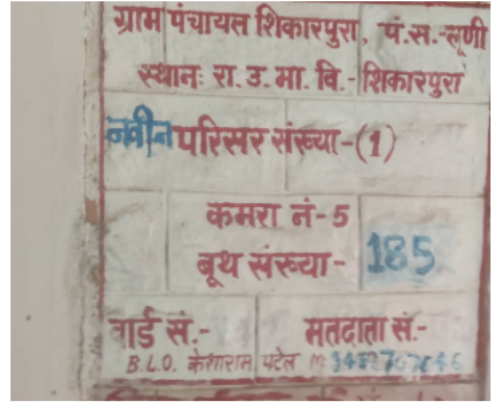 ग्राम पंचायत शिकारपुरा, पं.स.-लूणी
स्थानः रा.उ.मा.वि.-शिकारपुरा
नवीन परिसर संख्या-(1)
कमरा नं-5
बूथ संख्या- 185
वार्ड सं.- मतदाता सं.-
B.L.O. केशाराम पटेल